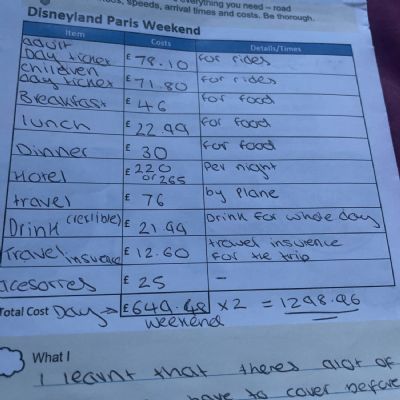 everything you need – road
speeds, arrival times and costs. Be thorough.
Disneyland Paris Weekend
Item Costs Details/Times
adult
Day ticket £ 78.10 for rides
children
day ticket £ 71.80 for rides
Breakfast £ 46 for food
lunch £ 22.99 for food
Dinner £ 30 for food
Hotel £ 220 or 265 Per night
travel £ 76 by Plane
Drink £ 21.99 Drink for whole day
Travel insurence £ 12.60 travel insurence
for the trip
acesorres £ 25 –
Total Cost Day → £649.48 x2 = 1298.96
weekend
What I
I learnt that theres alot of
have to cover before